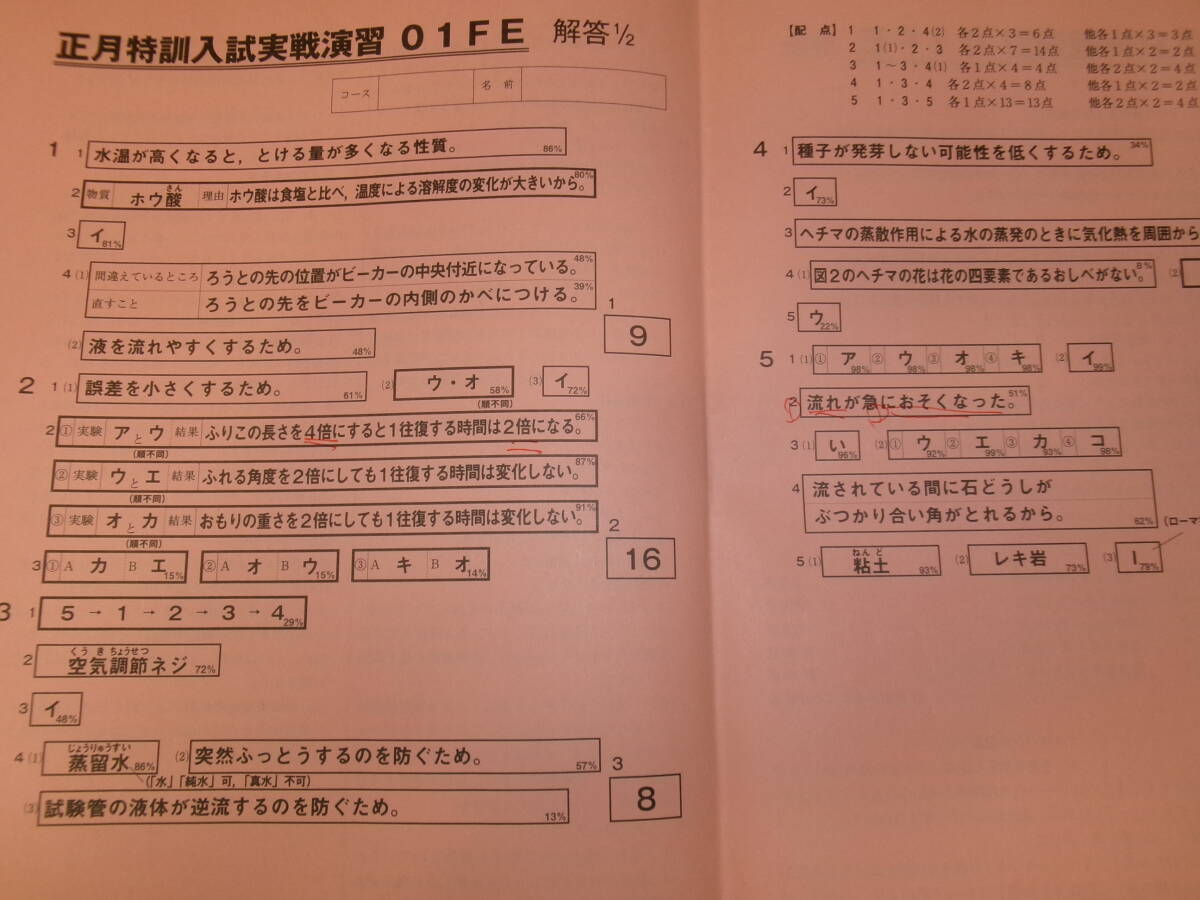 正月特訓入試実戦演習 01FE 解答1/2
コース 名前
【配 点】 1 1・2・4(2) 各2点×3=6点 他各1点×3=3点
2 1(1)・2・3 各2点×7=14点 他各1点×2=2点
3 1〜3・4(1) 各1点×4=4点 他各2点×2=4点
4 1・3・4 各2点×4=8点 他各1点×2=2点
5 1・3・5 各1点×13=13点 他各2点×2=4点
1 1 水温が高くなると,とける量が多くなる性質。 86%
2 物質 ホウ酸 さん 理由 ホウ酸は食塩と比べ,温度による溶解度の変化が大きいから。 80%
3 イ 81%
4 (1) 間違えているところ ろうとの先の位置がビーカーの中央付近になっている。 48%
直すこと ろうとの先をビーカーの内側のかべにつける。 39%
(2) 液を流れやすくするため。 48%
1
9
2 1 (1) 誤差を小さくするため。 61% (2) ウ・オ 58% (順不同) (3) イ 72%
2 ① 実験 アとウ 結果 ふりこの長さを4倍にすると1往復する時間は2倍になる。 66%
(順不同)
② 実験 ウとエ 結果 ふれる角度を2倍にしても1往復する時間は変化しない。 87%
(順不同)
③ 実験 オとカ 結果 おもりの重さを2倍にしても1往復する時間は変化しない。 91%
(順不同)
3 ① A カ B エ 15% ② A オ B ウ 15% ③ A キ B オ 14%
2
16
3 1 5→1→2→3→4 29%
2 空気調節ネジ くうきちょうせつ 72%
3 イ 48%
4 (1) 蒸留水 じょうりゅうすい 86% (2) 突然ふっとうするのを防ぐため。 57%
(「水」「純水」可,「真水」不可)
(3) 試験管の液体が逆流するのを防ぐため。 13%
3
8
4 1 種子が発芽しない可能性を低くするため。 34%
2 イ 73%
3 ヘチマの蒸散作用による水の蒸発のときに気化熱を周囲から
4 (1) 図2のヘチマの花は花の四要素であるおしべがない。 8% (2)
5 ウ 22%
5 1 (1) ① ア 98% ② ウ 98% ③ オ 98% ④ キ 98% (2) イ 99%
2 流れが急におそくなった。 51%
3 (1) い 96% (2) ① ウ 92% ② エ 99% ③ カ 93% ④ コ 98%
4 流されている間に石どうしが
ぶつかり合い角がとれるから。 62%
5 (1) 粘土 ねんど 93% (2) レキ岩 73% (3) I 79% (ローマ